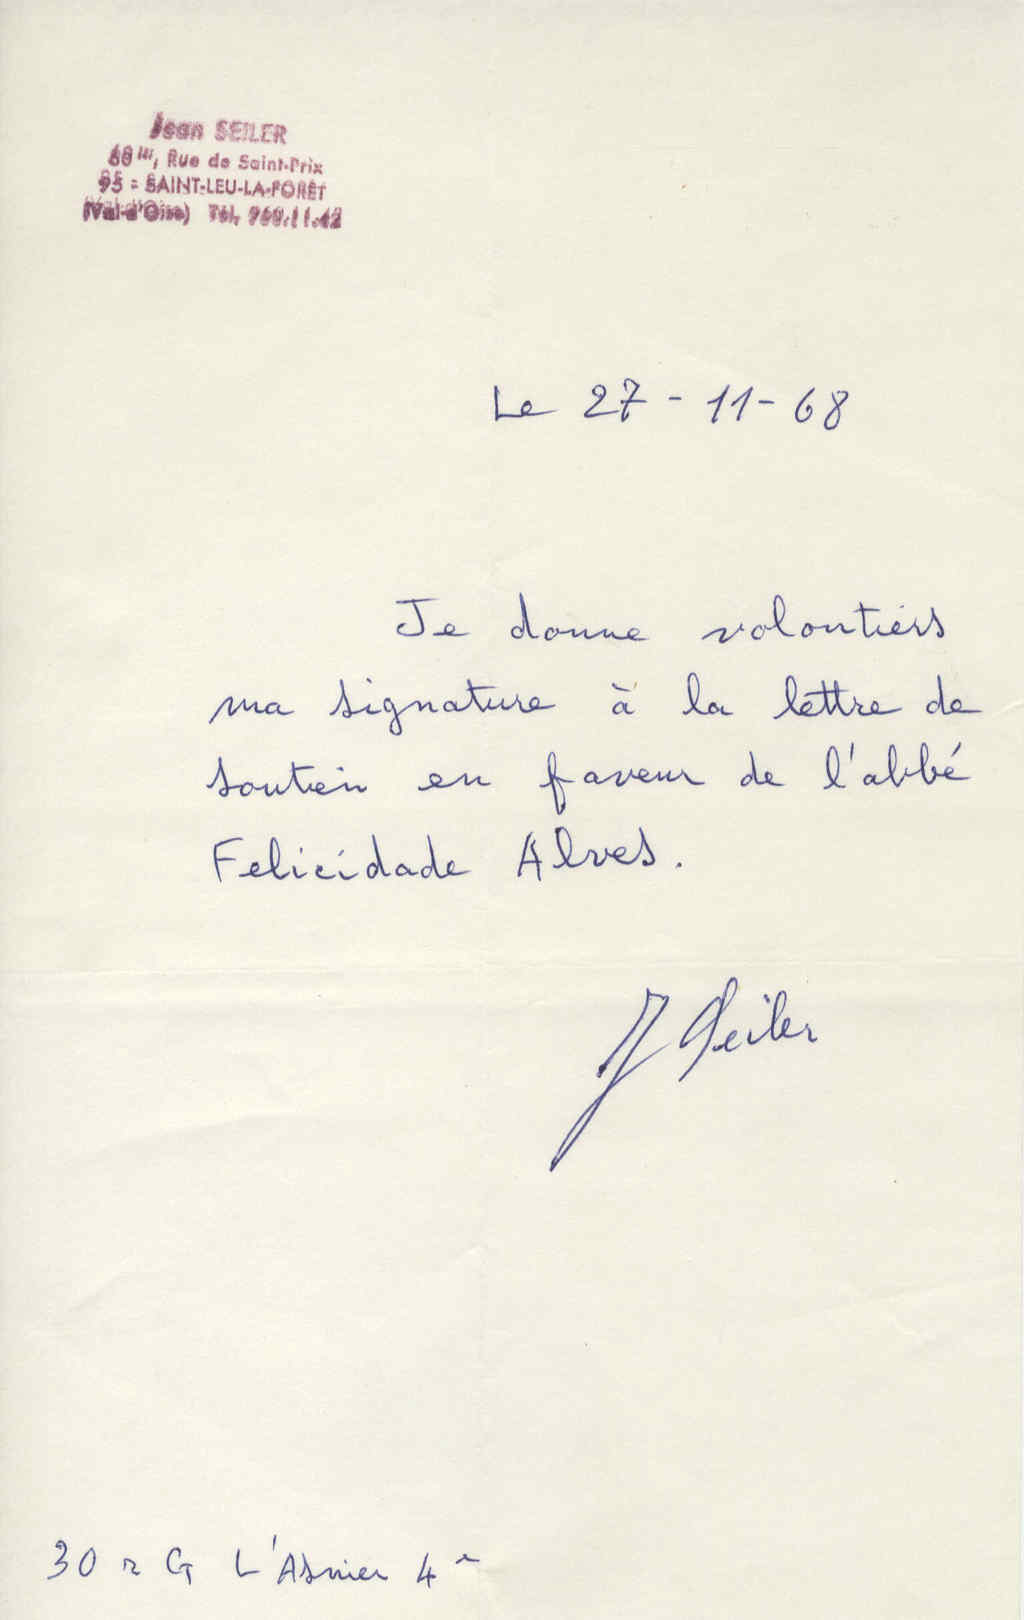 Jean SEILER
68 bis, Rue de Saint-Prix
95 - SAINT-LEU-LA-FORÊT
(Val-d'Oise) Tél. 960.11.42
Le 27-11-68
Je donne volontiers
ma signature à la lettre de
soutien en faveur de l'abbé
Felicidade Alves.
J Seiler
30 r G L'Asnier 4e